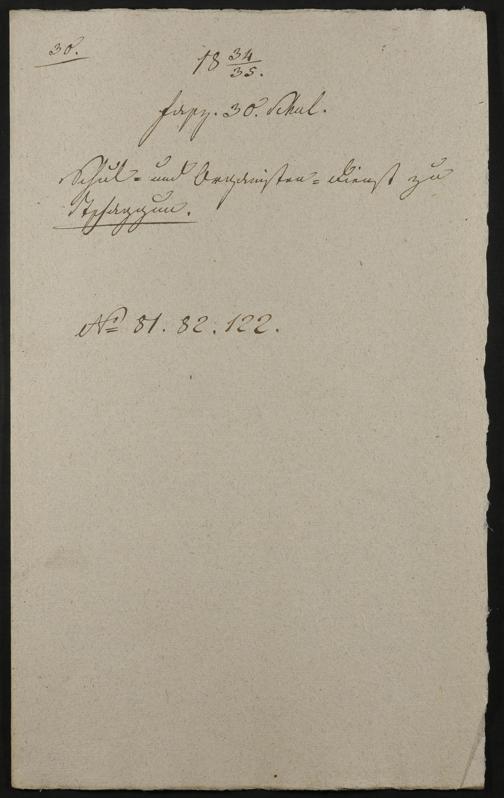 30.
18 34/35.
Fasz. 30. Schul.
Schul- und Organisten-Dienst zu
Tschaggun.
No 81. 82. 122.